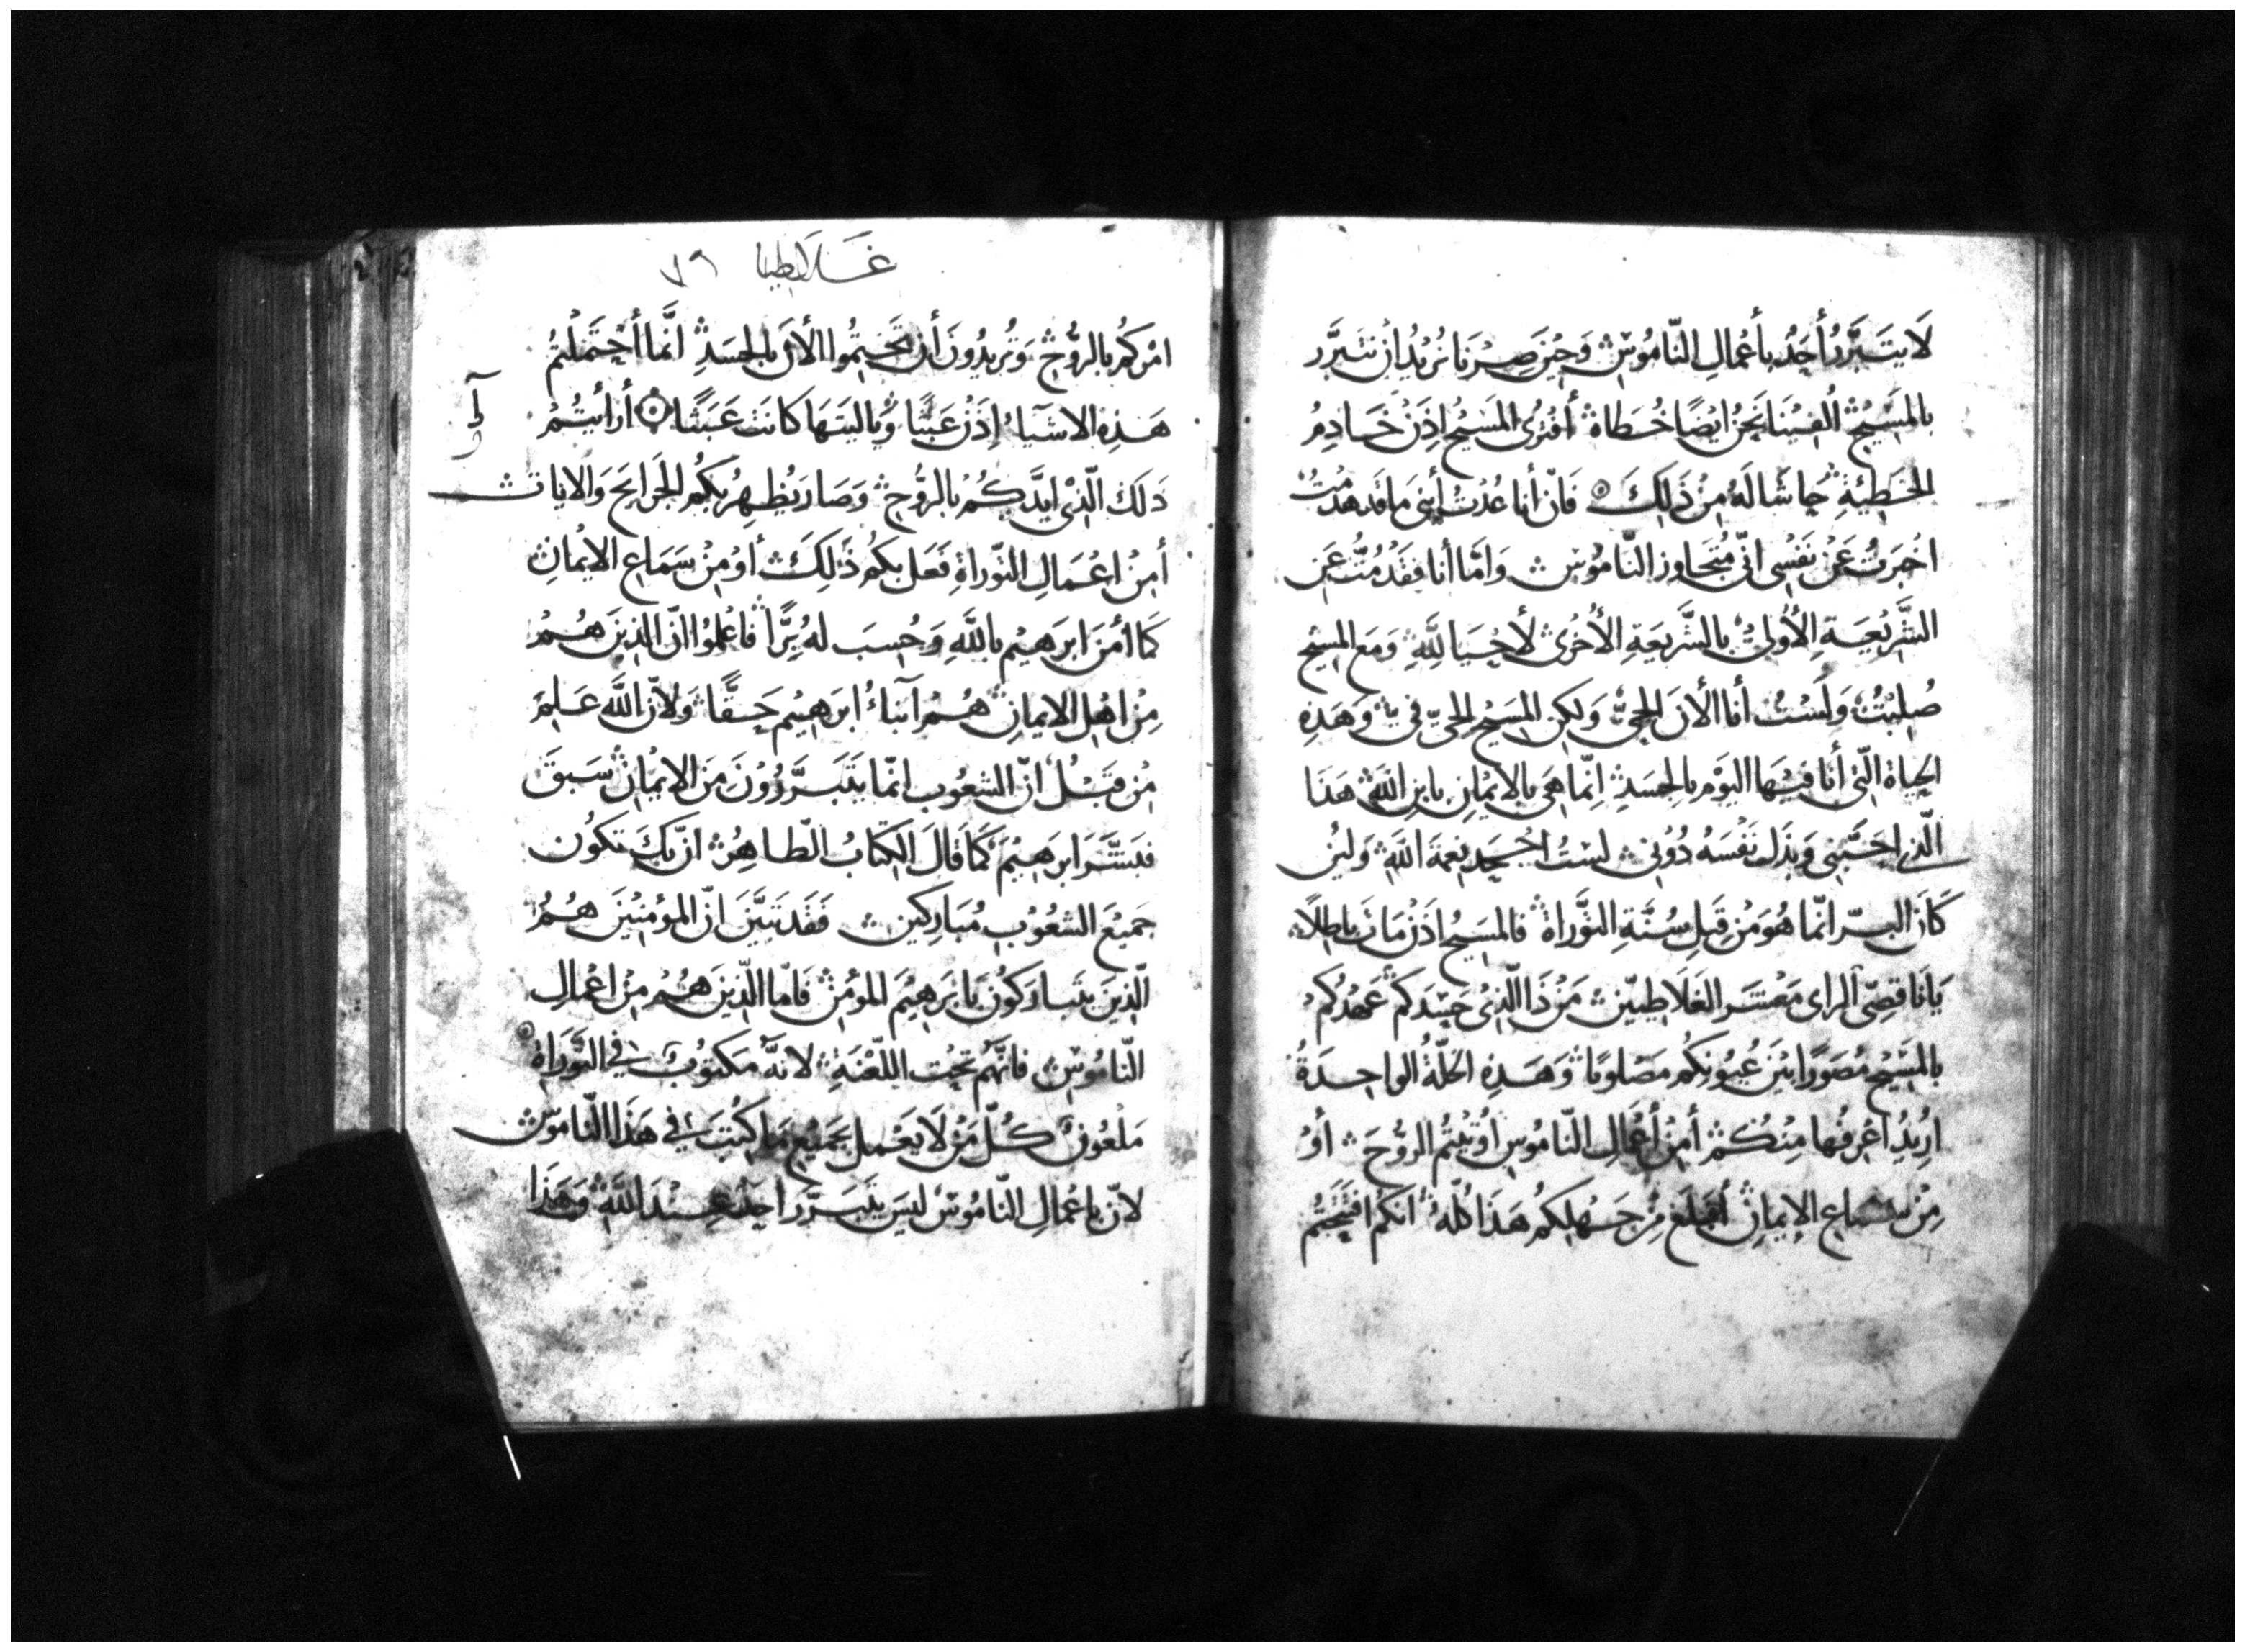 لَا يَتَبَرَّرُ أَحَدٌ بأَعْمَالِ النّامُوسِ وَحِيْنَ صِرْنا نُرِيْدُ ان نتَبرَّر
بالمَسِيْحِ اُلْفِيْنَا نَحْنُ ايْضًا خُطاة أَفتُرَى المَسِيْحُ اِذَنْ خَادِمُ
الخَطِيْئَةِ حاشَا لَهُ مِنْ ذَلِكَ فَانّ أنا عُدْتُ أبنِى مَا قَد هَدمْتُ
اخْبَرتُ عَنْ نَفْسِى انّى مُتجَاوز النّامُوس وَامّا أنا فقَدْ مُتُّ عَن
الشَّرِيْعَةِ الأوُلىٰ بالشَّرِيعَةِ الأُخْرى لأحْيَا لِلّهِ وَمَع المسِيْح
صُلِبْتُ وَلَسْتُ أنا الأنَ الحيّ وَلكِن المسَيْح الحيّ فىّ وَهَذِهِ
الحيَاة الّتى أنا فيْهَا اليَوْمَ بالجَسَدِ اِنّما هِىَ بالايمْانِ بابنِ اللهِ هَذا
الّذى احَبَّنِى وَبَذَل نَفْسَهُ دُوْنِى لسْتُ اجْحَد نِعمَة اللهِ وَلَئِن
كَانَ البِرّ انّما هُوَ مِنْ قِبَلِ سُنَّةِ التّوَراة فالمَسِيْحُ اذَنْ مَاتَ باطِلًا
يَا نَاقِصِى الراى مَعْشَر الغَلَاطِيّين مَنْ ذَا الّذِىْ حَسَدكم عَهْدُكُمْ
بالمسَيْحِ مُصَوّرًا بَيْنَ عُيُونِكُم مَصْلوبًا وَهَذِهِ الخلّةُ الواحِدَةُ
ارِيْدُ اعْرفُها مِنْكُمْ أمِنْ أعْمَالِ النّامُوسِ اُوْتيْتُم الرُّوْحَ أوْ
مِنْ سمَاع الإيمانِ أفبَلَغ مِنْ جَهْلِكُم هَذا كُلّه انكُم افتَتحْتُمْ
غَلاطيا ٧٩
امْرَكُم بالرُّوْحِ وَتُرِيْدُوْنَ أن تَخْتِمُوا الأنَ بالجَسَدِ انّمَا أحْتَمَلْتُمُ
هَذِهِ الاشيَاء اِذَنْ عَبَثًا وَيَاليَتَهَا كَانَت عَبَثًا أرَأيْتُمْ
ذَلكَ الّذِىْ ايَّدَكُمْ بالرُّوْحِ وَصَارَ يُظهِرُ بكُم الجَرايحَ وَالايات
أمِنْ اعْمَالِ التّوراةِ فَعَلَ بكُم ذَلِكَ أوْ مِنْ سَمَاع الايْمانِ
كَمَا أمَنَ ابرَهيْم باللهِ وَحُسِبَ لهُ بِرًّا فاعْلَمُوا انّ الذِينَ هُمُ
مِنْ اهْلِ الايمانِ هُمْ أبنَاءُ ابرَهيْم حَقًّا وَلانّ اللهَ عَلِمَ
مِنْ قَبْلُ انّ الشعُوب انمّا يتَبَرَّرُوْنَ مِنَ الايمْانِ سَبَقَ
فبَشَّرَ ابرهيْمَ كَمَا قَالَ الكِتابُ الطّاهِرُ انّ بكَ تكُون
جَميْعَ الشعُوْب مُبارَكين فَقَد تَبيَّنَ انّ المؤمِنيْنَ هُمُ
الّذِينَ يتَبارَكُونَ بابرَهيْمَ المؤمِن فَامّا الّذِينَ هُمْ مِنْ اعْمَالِ
النّامُوس فانّهُم تحْتِ اللّعْنَةِ لانّهُ مَكتُوبٌ فى التّورَاة
مَلعُونٌ كُلّ مَنْ لَا يعْمل بجَمِيْع مَا كُتِبَ فى هَذا النّاموس
لانّ باعْمَالِ النّامُوس ليسَ يتَبَرّر احَدٌ عِنْدَ اللهِ وَهَذا